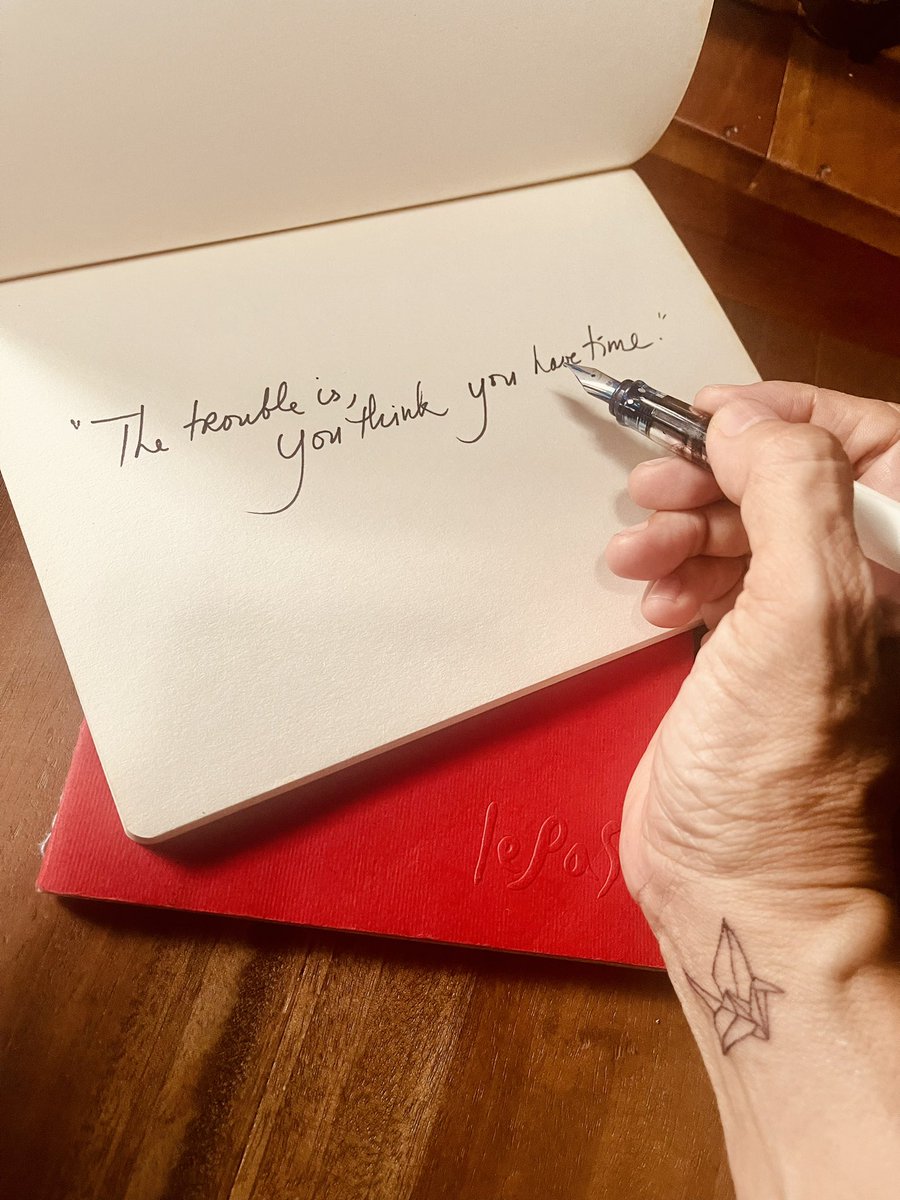 "The trouble is,
you think you have time."
lePas